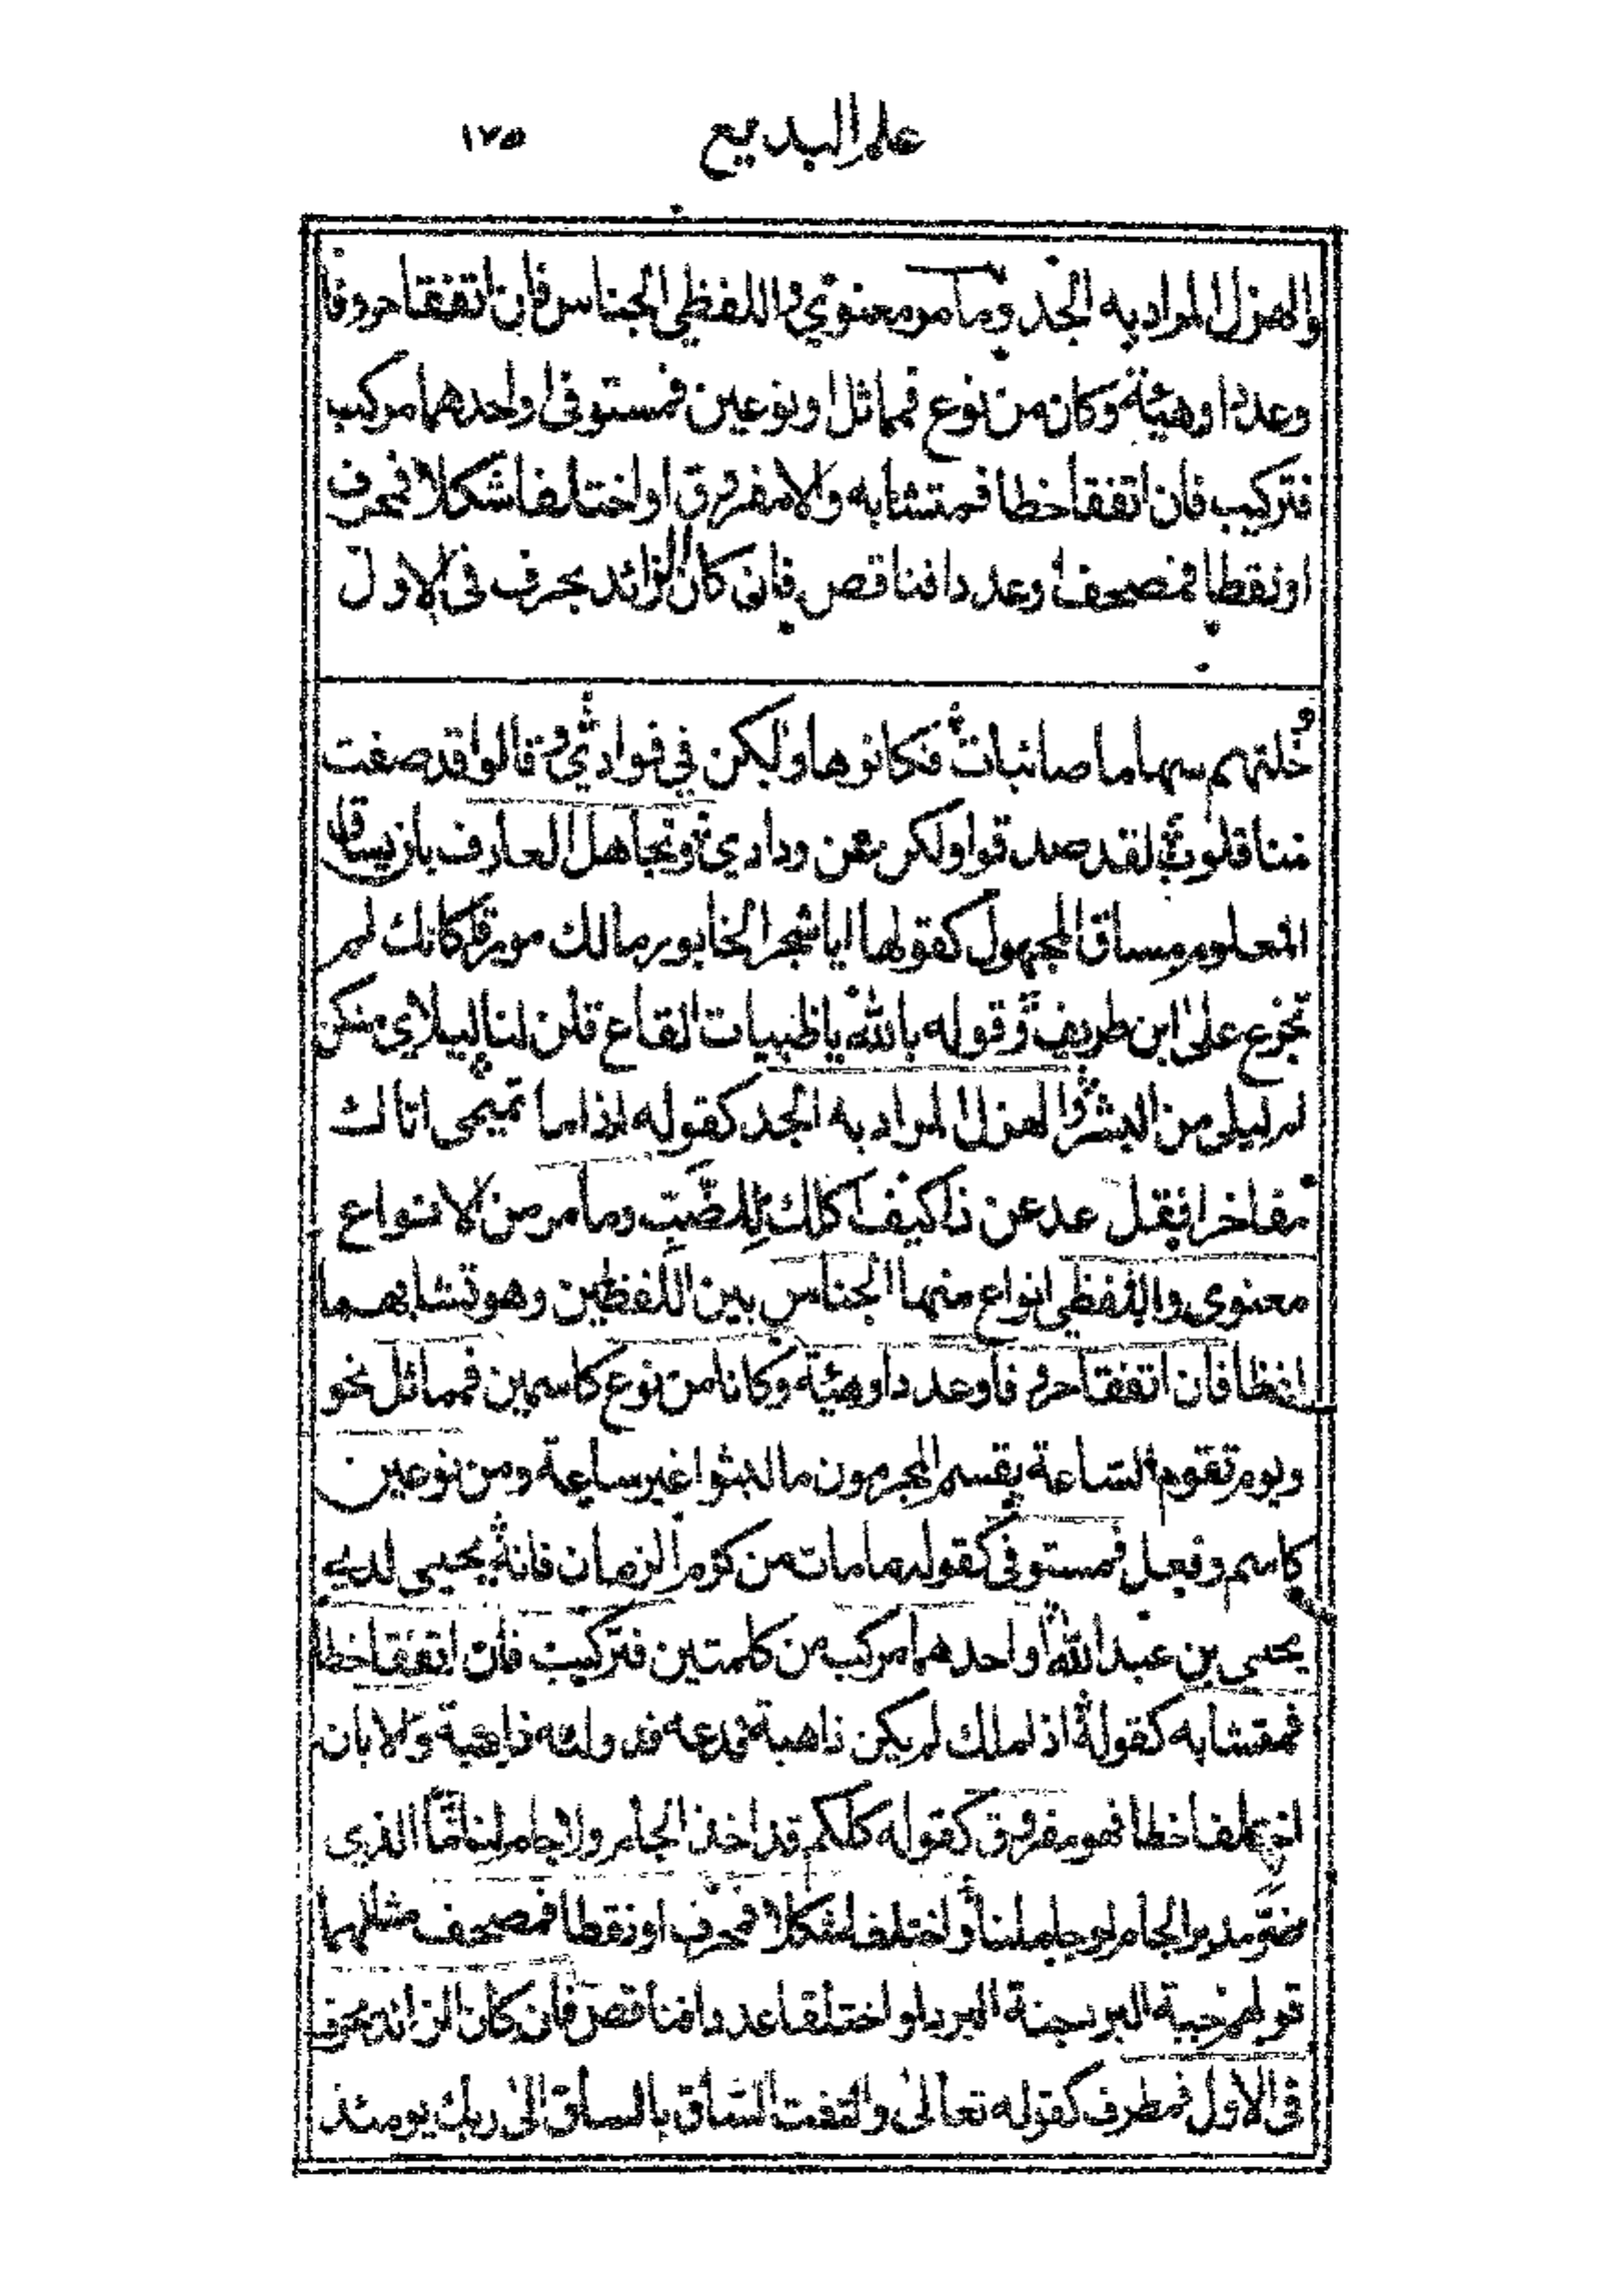 علم البديع ١٧٥
والهزل المراد به الجد وما مر معنوي واللفظي الجناس فان اتفقا حروفا
وعددا وهيئة وكانه من نوع فمماثل او نوعين فمستوفى او احدهما مركب
فتركيب فان اتفقا خطا فمتشابه والا مفروق او اختلفا شكلا فمحرف
او نقطا فمصحف او عددا فناقص فان كان الزائد بحرف في الاول
خلتهم سهاما صائبات فكانوها ولكن في فوادي وقالوا قد صفت
منا قلوب لقد صدقوا ولكن عن ودادي وتجاهل العارف بان يساق
المعلوم مساق المجهول كقولها ايا شجر الخابور مالك مورقا كانك لم
تجزع على ابن طريف وقوله بالله يا ظبيات القاع قلن لنا ليلاي منكن
ام ليلى من البشر والهزل المراد به الجد كقوله اذا ما تميمى اتاك
مفاخرا فقل عد عن ذا كيف اكلك للضب وما مر من الانواع
معنوى واللفظي انواع منها الجناس بين اللفظين وهو تشابههما
لفظا فان اتفقا حروفا وعددا وهيئة وكانا من نوع كاسمين فمماثل نحو
ويوم تقوم الساعة يقسم المجرمون ما لبثوا غير ساعة ومن نوعين
كاسم وفعل فمستوفى كقوله ما مات من كرم الزمان فانه يحيى لدى
يحيى بن عبد الله او احدهما مركب من كلمتين فتركيب فان اتفقا خطا
فمتشابه كقوله اذا ملك لم يكن ذاهبة فدعه فدولته ذاهبة والا بان
اختلفا خطا فهو مفروق كقوله كلكم قد اخذ الجام ولا جام لنا ما الذي
ضر مدير الجام لو جاملنا او اختلفا شكلا فمحرف او نقطا فمصحف مثلهما
قولهم جبة البرد جنة البرد او اختلفا عددا فناقص فان كان الزائد بحرف
فى الاول فمطرف كقوله تعالى والتفت الساق بالساق الى ربك يومئذ